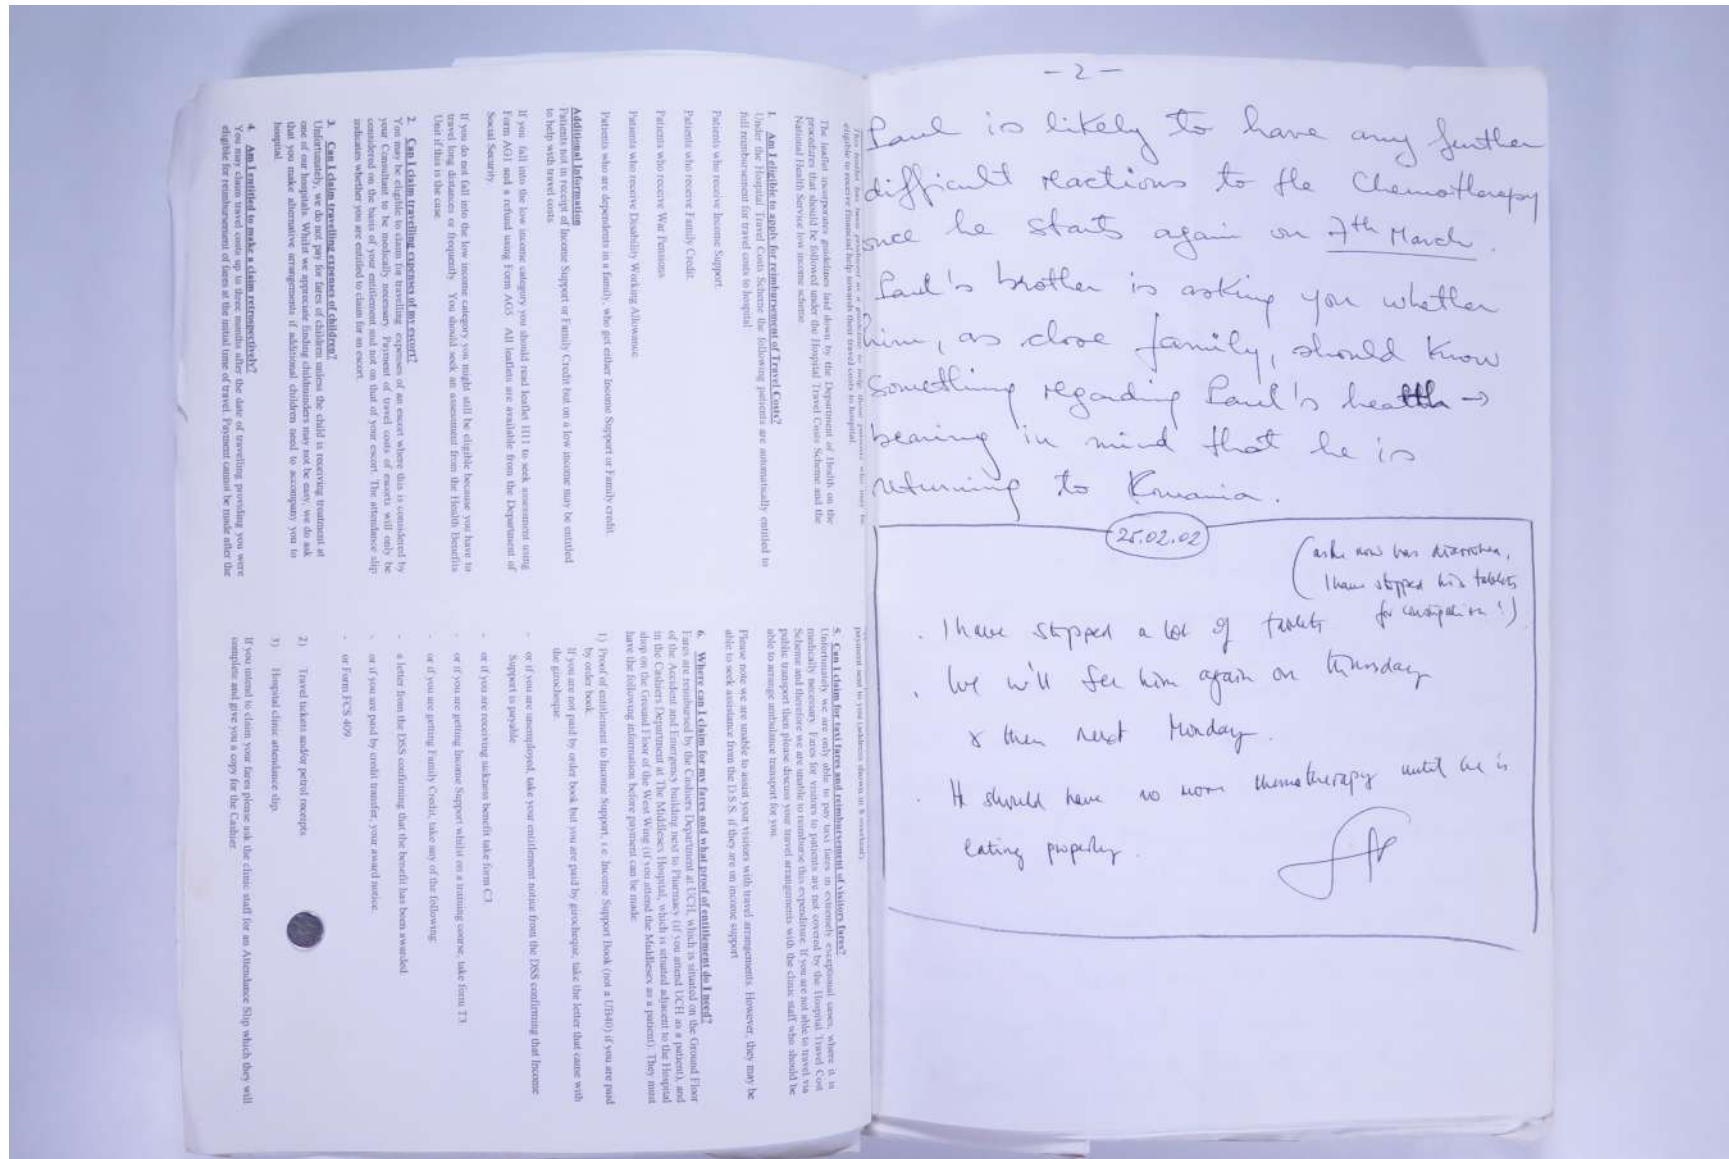 This leaflet has been produced as a guideline to help those patients who may be
eligible to receive financial help towards their travel costs to hospital.
The leaflet incorporates guidelines laid down by the Department of Health on the
procedures that should be followed under the Hospital Travel Costs Scheme and the
National Health Service low income scheme
1. Am I eligible to apply for reimbursement of Travel Costs?
Under the Hospital Travel Costs Scheme the following patients are automatically entitled to
full reimbursement for travel costs to hospital
Patients who receive Income Support
Patients who receive Family Credit.
Patients who receive War Pensions
Patients who receive Disability Working Allowance.
Patients who are dependents in a family, who get either Income Support or Family credit
Additional Information
Patients not in receipt of Income Support or Family Credit but on a low income may be entitled
to help with travel costs
If you fall into the low income category you should read leaflet H11 to seek assessment using
Form AG1 and a refund using Form AG5 All leaflets are available from the Department of
Social Security.
If you do not fall into the low income category you might still be eligible because you have to
travel long distances or frequently. You should seek an assessment from the Health Benefits
Unit if this is the case.
2. Can I claim travelling expenses of my escort?
You may be eligible to claim for travelling expenses of an escort where this is considered by
your Consultant to be medically necessary. Payment of travel costs of escorts will only be
considered on the basis of your entitlement and not on that of your escort. The attendance slip
indicates whether you are entitled to claim for an escort.
3. Can I claim travelling expenses of children?
Unfortunately, we do not pay for fares of children unless the child is receiving treatment at
one of our hospitals. Whilst we appreciate finding childminders may not be easy, we do ask
that you make alternative arrangements if additional children need to accompany you to
hospital.
4. Am I entitled to make a claim retrospectively?
You may claim travel costs up to three months after the date of travelling providing you were
eligible for reimbursement of fares at the initial time of travel. Payment cannot be made after the
payment sent to you (address shown in 6 overleaf).
5. Can I claim for taxi fares and reimbursement of visitors fares?
Unfortunately we are only able to pay taxi fares in extremely exceptional cases, where it is
medically necessary. Fares for visitors to patients are not covered by the Hospital Travel Cost
Scheme and therefore we are unable to reimburse this expenditure. If you are not able to travel via
public transport then please discuss your travel arrangements with the clinic staff who should be
able to arrange ambulance transport for you.
Please note we are unable to assist your visitors with travel arrangements. However, they may be
able to seek assistance from the D.S.S. if they are on income support
6. Where can I claim for my fares and what proof of entitlement do I need?
Fares are reimbursed by the Cashiers Department at UCH, which is situated on the Ground Floor
of the Accident and Emergency building next to Pharmacy (if you attend UCH as a patient), and
in the Cashiers Department at The Middlesex Hospital, which is situated adjacent to the Hospital
shop on the Ground Floor of the West Wing (if you attend the Middlesex as a patient). They must
have the following information before payment can be made:
1) Proof of entitlement to Income Support, i.e. Income Support Book (not a UB40) if you are paid
by order book.
If you are not paid by order book but you are paid by girocheque, take the letter that came with
the girocheque.
- or if you are unemployed, take your entitlement notice from the DSS confirming that Income
Support is payable
- or if you are receiving sickness benefit take form C3
- or if you are getting Income Support whilst on a training course, take form T3
- or if you are getting Family Credit, take any of the following:
- a letter from the DSS confirming that the benefit has been awarded
- or if you are paid by credit transfer, your award notice.
- or Form FCS 409
2) Travel tickets and/or petrol receipts
3) Hospital clinic attendance slip.
If you intend to claim your fares please ask the clinic staff for an Attendance Slip which they will
complete and give you a copy for the Cashier
- 2 -
Paul is likely to have any further
difficult reactions to the Chemotherapy
once he starts again on 7th March.
Paul's brother is asking you whether
him, as close family, should know
something regarding Paul's health →
bearing in mind that he is
returning to Romania.
25.02.02
(as he now has diarrhoea,
I have stopped his tablets
for constipation!)
. I have stopped a lot of tablets
. We will see him again on Thursday
& then next Monday.
. He should have no more chemotherapy until he is
eating properly.